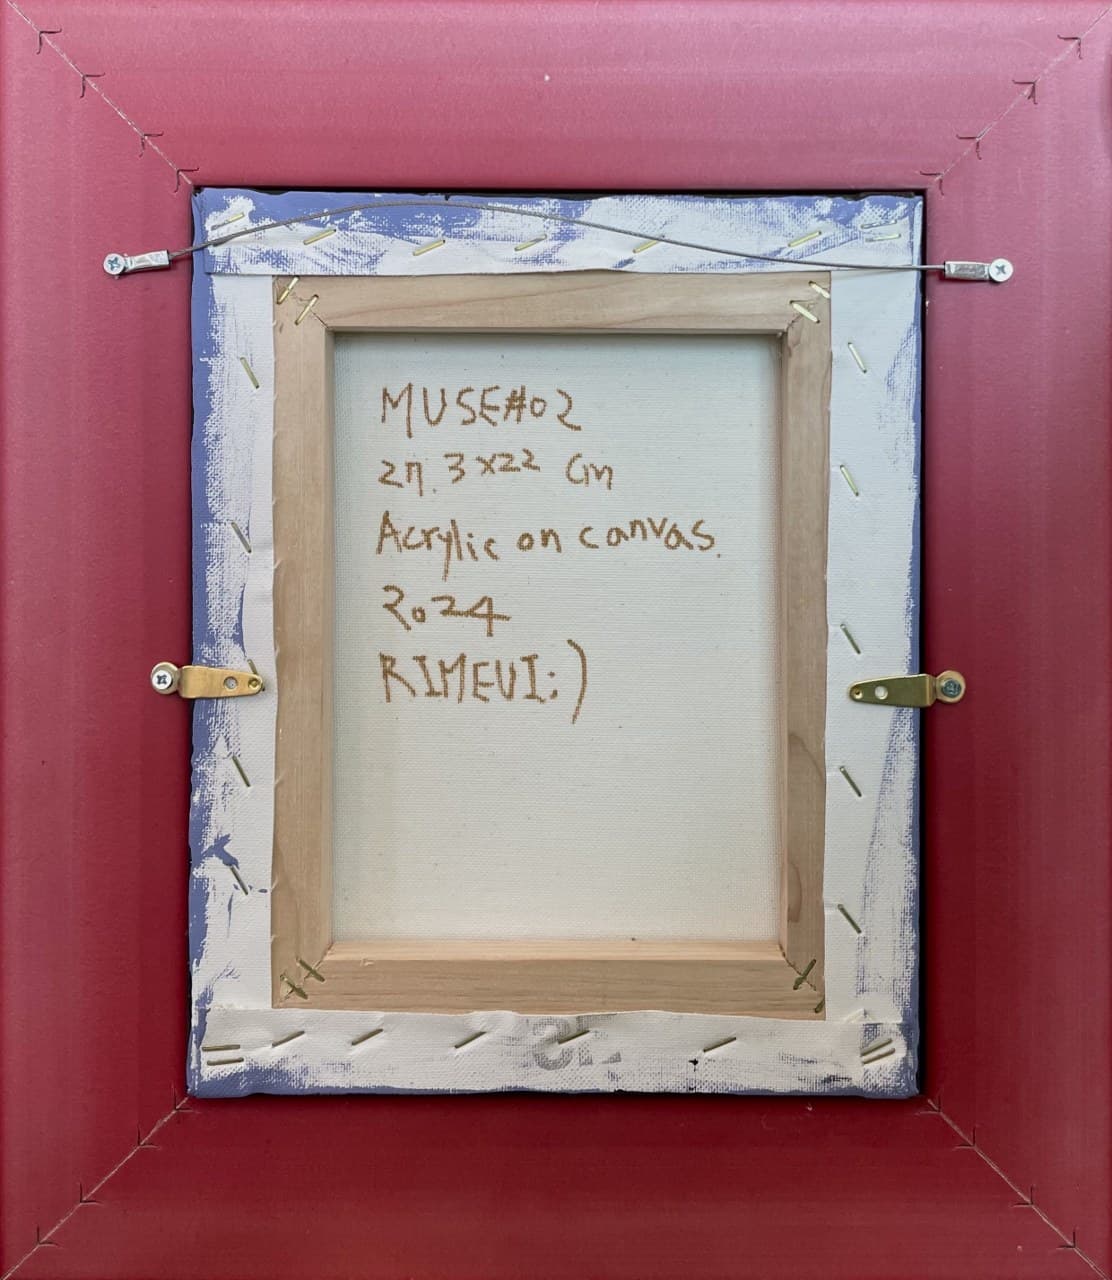 MUSE#02
27.3x22 cm
Acrylic on canvas.
2024
RIMEUI:)